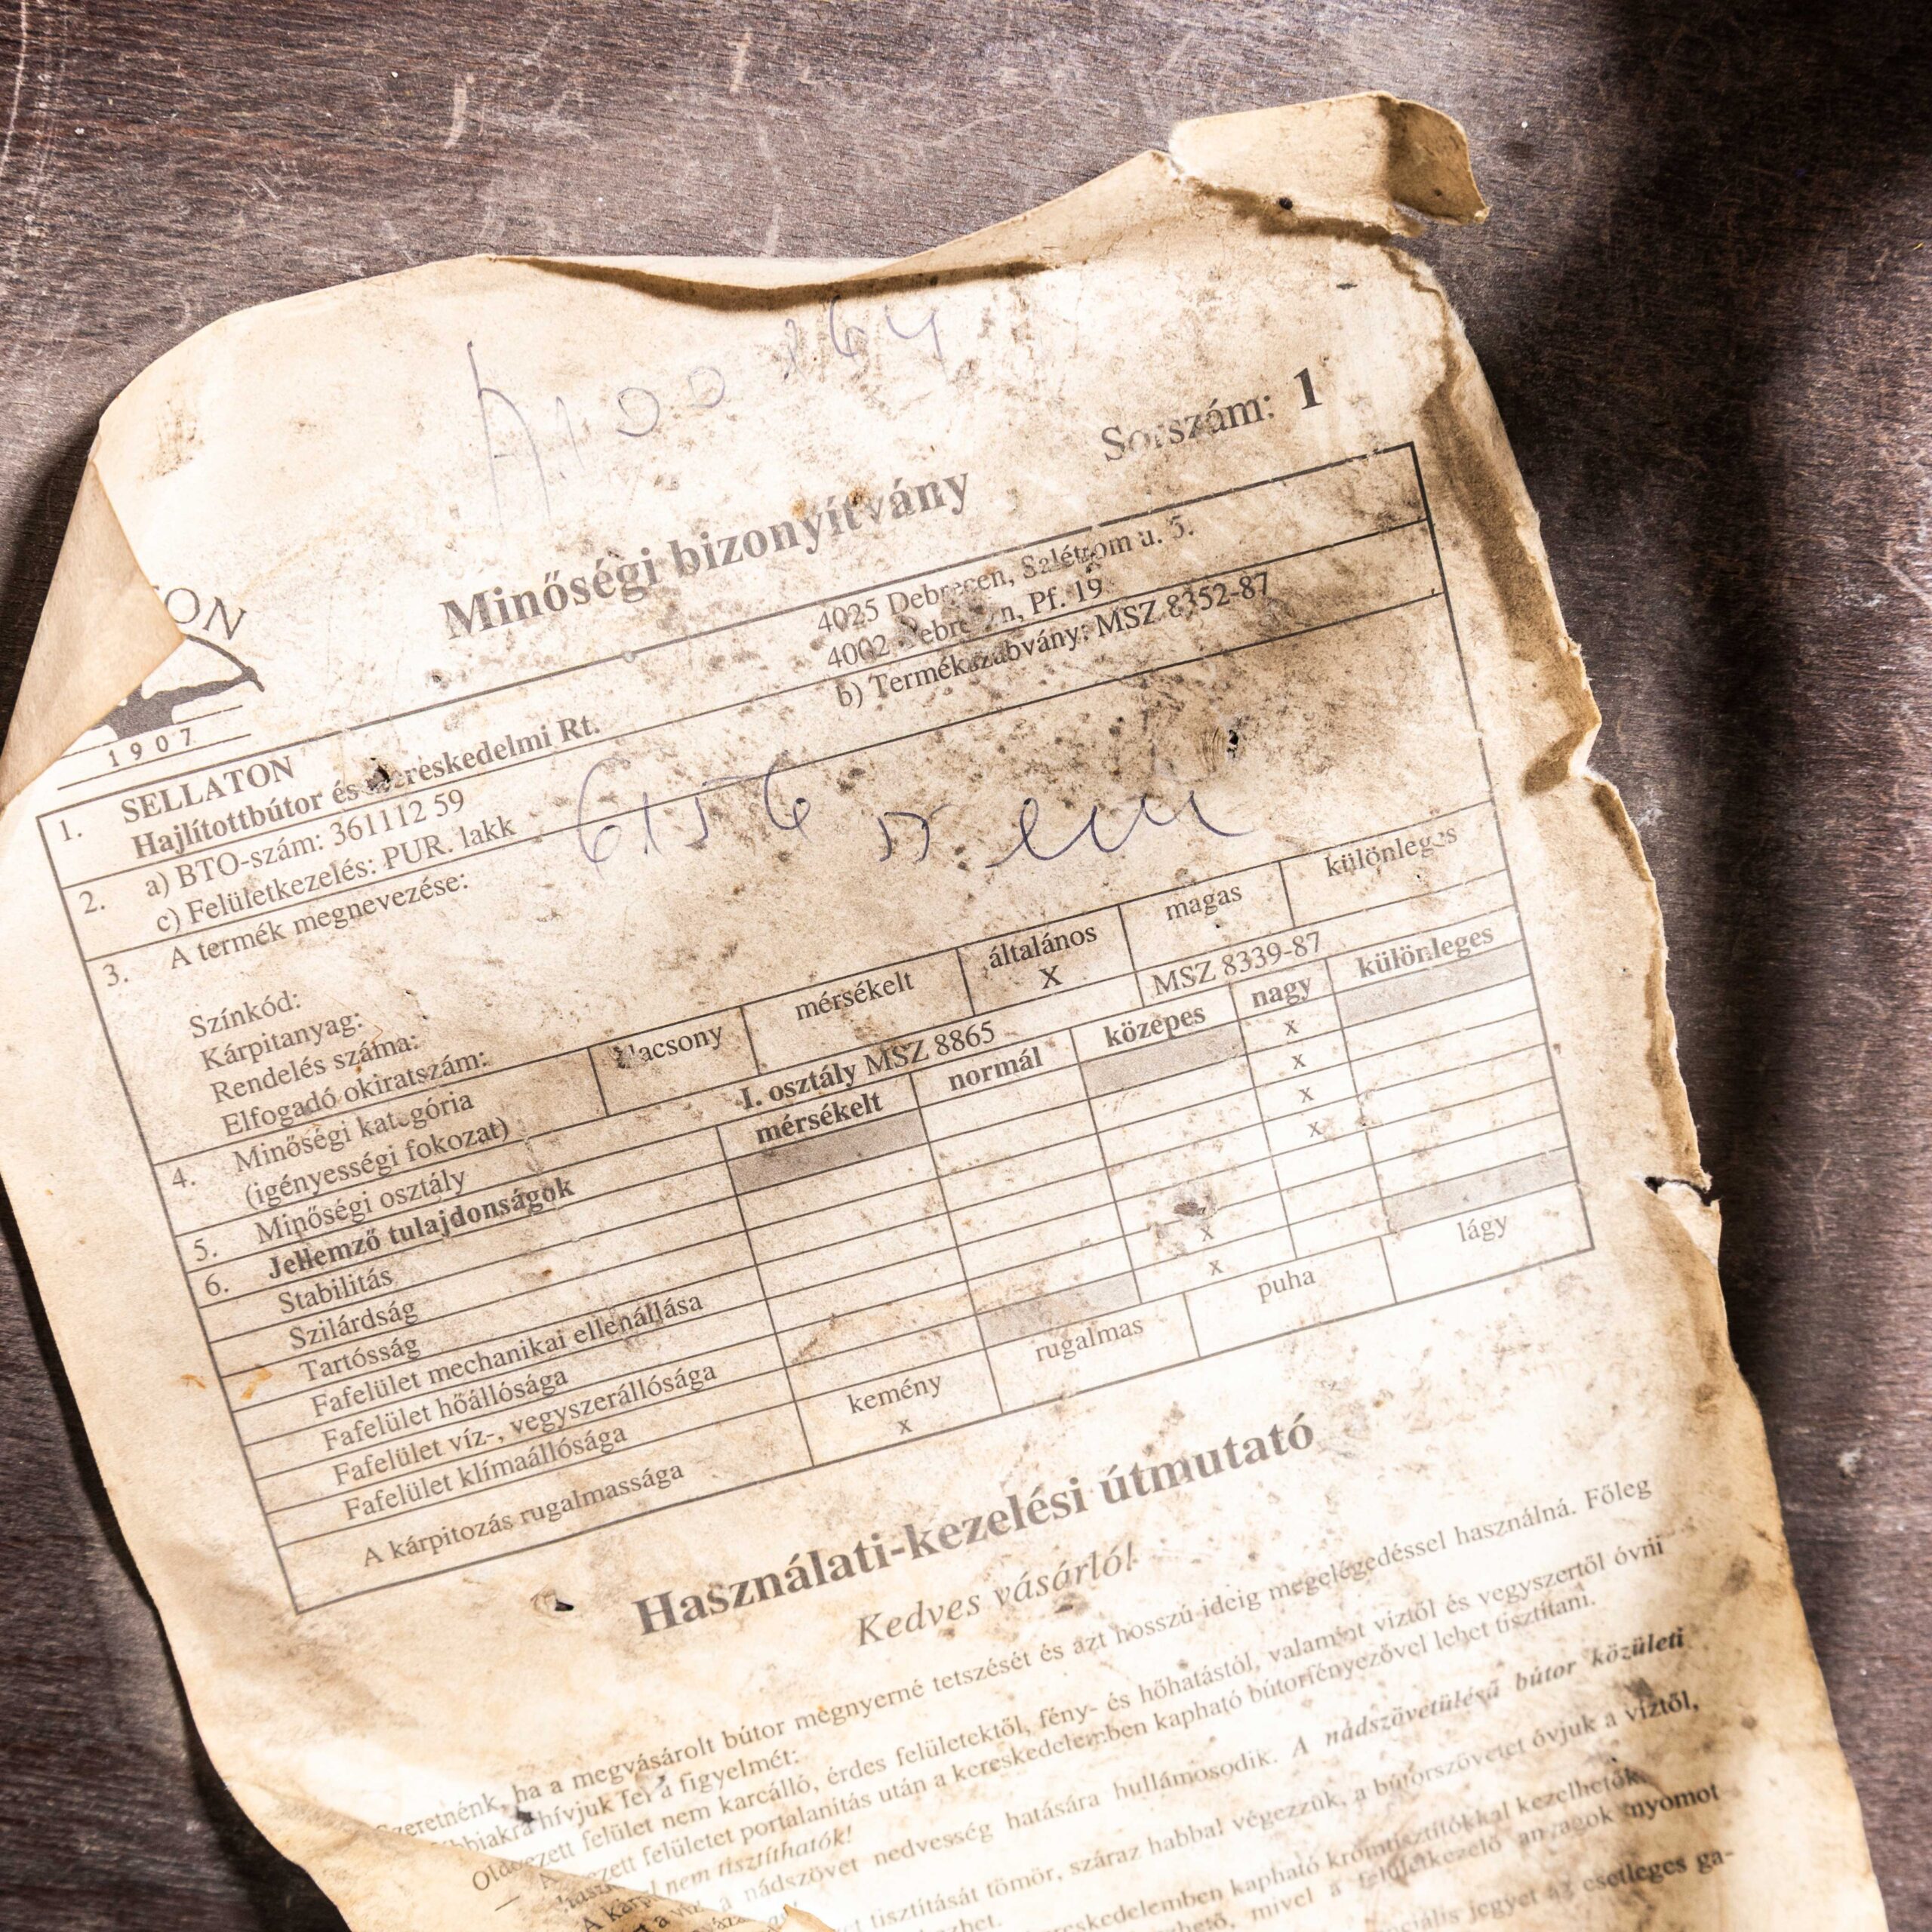 Sorszám: 1
Minőségi bizonyítvány
1907
1. SELLATON
Hajlítottbútor és kereskedelmi Rt.
4025 Debrecen, Salétrom u. 5.
4002 Debrecen, Pf. 19
2. a) BTO-szám: 361112 59
b) Termékszabvány: MSZ 8352-87
c) Felületkezelés: PUR. lakk
3. A termék megnevezése:
6156
Színkód:
Kárpitanyag:
Rendelés száma:
Elfogadó okiratszám:
4. Minőségi kategória
(igényességi fokozat)
alacsony mérsékelt általános magas különleges
X
5. Minőségi osztály I. osztály MSZ 8865 MSZ 8339-87
6. Jellemző tulajdonságok mérsékelt normál közepes nagy különleges
Stabilitás x
Szilárdság x
Tartósság x
Fafelület mechanikai ellenállása x
Fafelület hőállósága
Fafelület víz-, vegyszerállósága x
Fafelület klímaállósága x
A kárpitozás rugalmassága kemény rugalmas puha lágy
x
Használati-kezelési útmutató
Kedves vásárló!
Szeretnénk, ha a megvásárolt bútor megnyerné tetszését és azt hosszú ideig megelégedéssel használná. Főleg
hívjuk fel a figyelmét:
felület nem karcálló, érdes felületektől, fény- és hőhatástól, valamint víztől és vegyszertől óvni
felületet portalanitás után a kereskedelemben kapható bútorfényezővel lehet tisztítani.
nem tisztíthatók!
a nádszövet nedvesség hatására hullámosodik. A nádszövetülésű bútor közületi
tisztítását tömör, száraz habbal végezzük, a bútorszövetet óvjuk a víztől,
kereskedelemben kapható krómtisztítókkal kezelhetők.
mivel a felületkezelő anyagok nyomot
jegyet az esetleges ga-